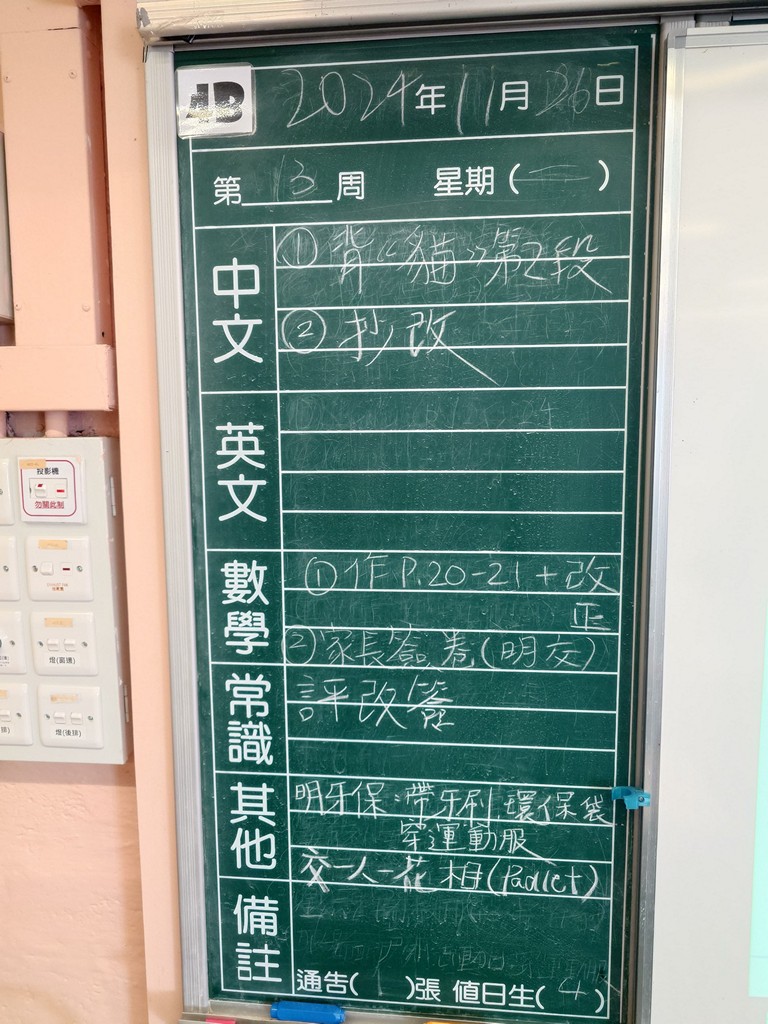 4B 2024年11月26日
第13周 星期(二)
中文
① 背《貓》第2段
② 抄改
英文
數學
① 作P.20-21 + 改
正
② 家長簽卷(明交)
常識
評改簽
其他
明牙保:帶牙刷,環保袋
穿運動服
交一人一花相(Padlet)
備註
通告( )張 值日生(4)
投影機
勿關此制
燈(窗邊)
燈(後排)